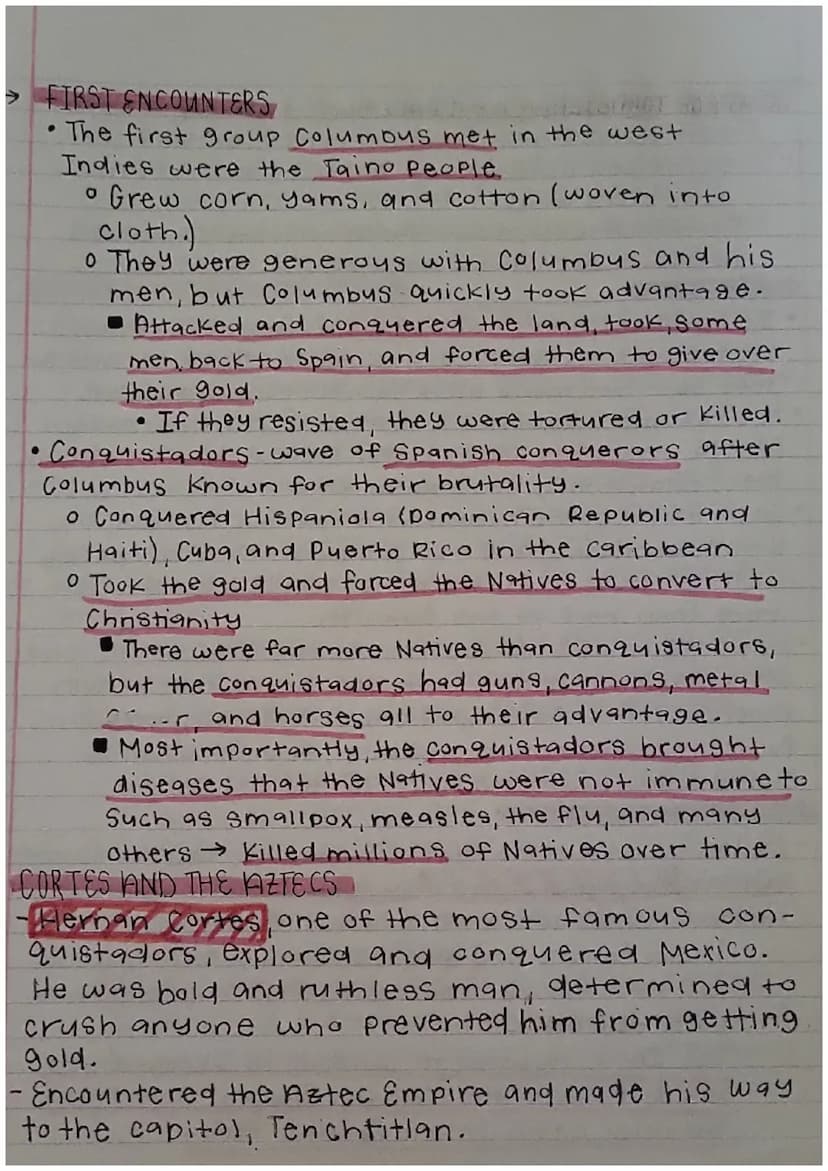 → FIRST ENCOUNTERS
• The first group Columbus met in the west
Indies were the Taino people
o Grew corn, yams, and cotton (woven into
cloth.)
o They were generous with Columbus and his
men, but Columbus quickly took advantage.
■ Attacked and conquered the land, took, some
men, back to Spain, and forced them to give over
their gold.
• If they resisted, they were tortured or killed.
• Conquistadors - wave of Spanish conquerors after
Columbus known for their brutality.
o Conquered Hispaniola (Dominican Republic and
Haiti), Cuba, and Puerto Rico in the Caribbean
o Took the gold and forced the Natives to convert to
Christianity
■ There were far more Natives than conquistadors,
but the conquistadors had guns, cannons, metal
and horses all to their advantage.
■ Most importantly, the conquistadors brought
diseases that the Natives were not immune to
such as smallpox, measles, the flu, and many
others → killed millions of Natives over time.
CORTES AND THE AZTECS
- Hernan Cortes, one of the most famous con-
quistadors, explored and conquered Mexico.
He was bold and ruthless man, determined to
crush anyone who prevented him from getting
gold.
- Encountered the Aztec Empire and made his way
to the capitol, Tenchtitlan.